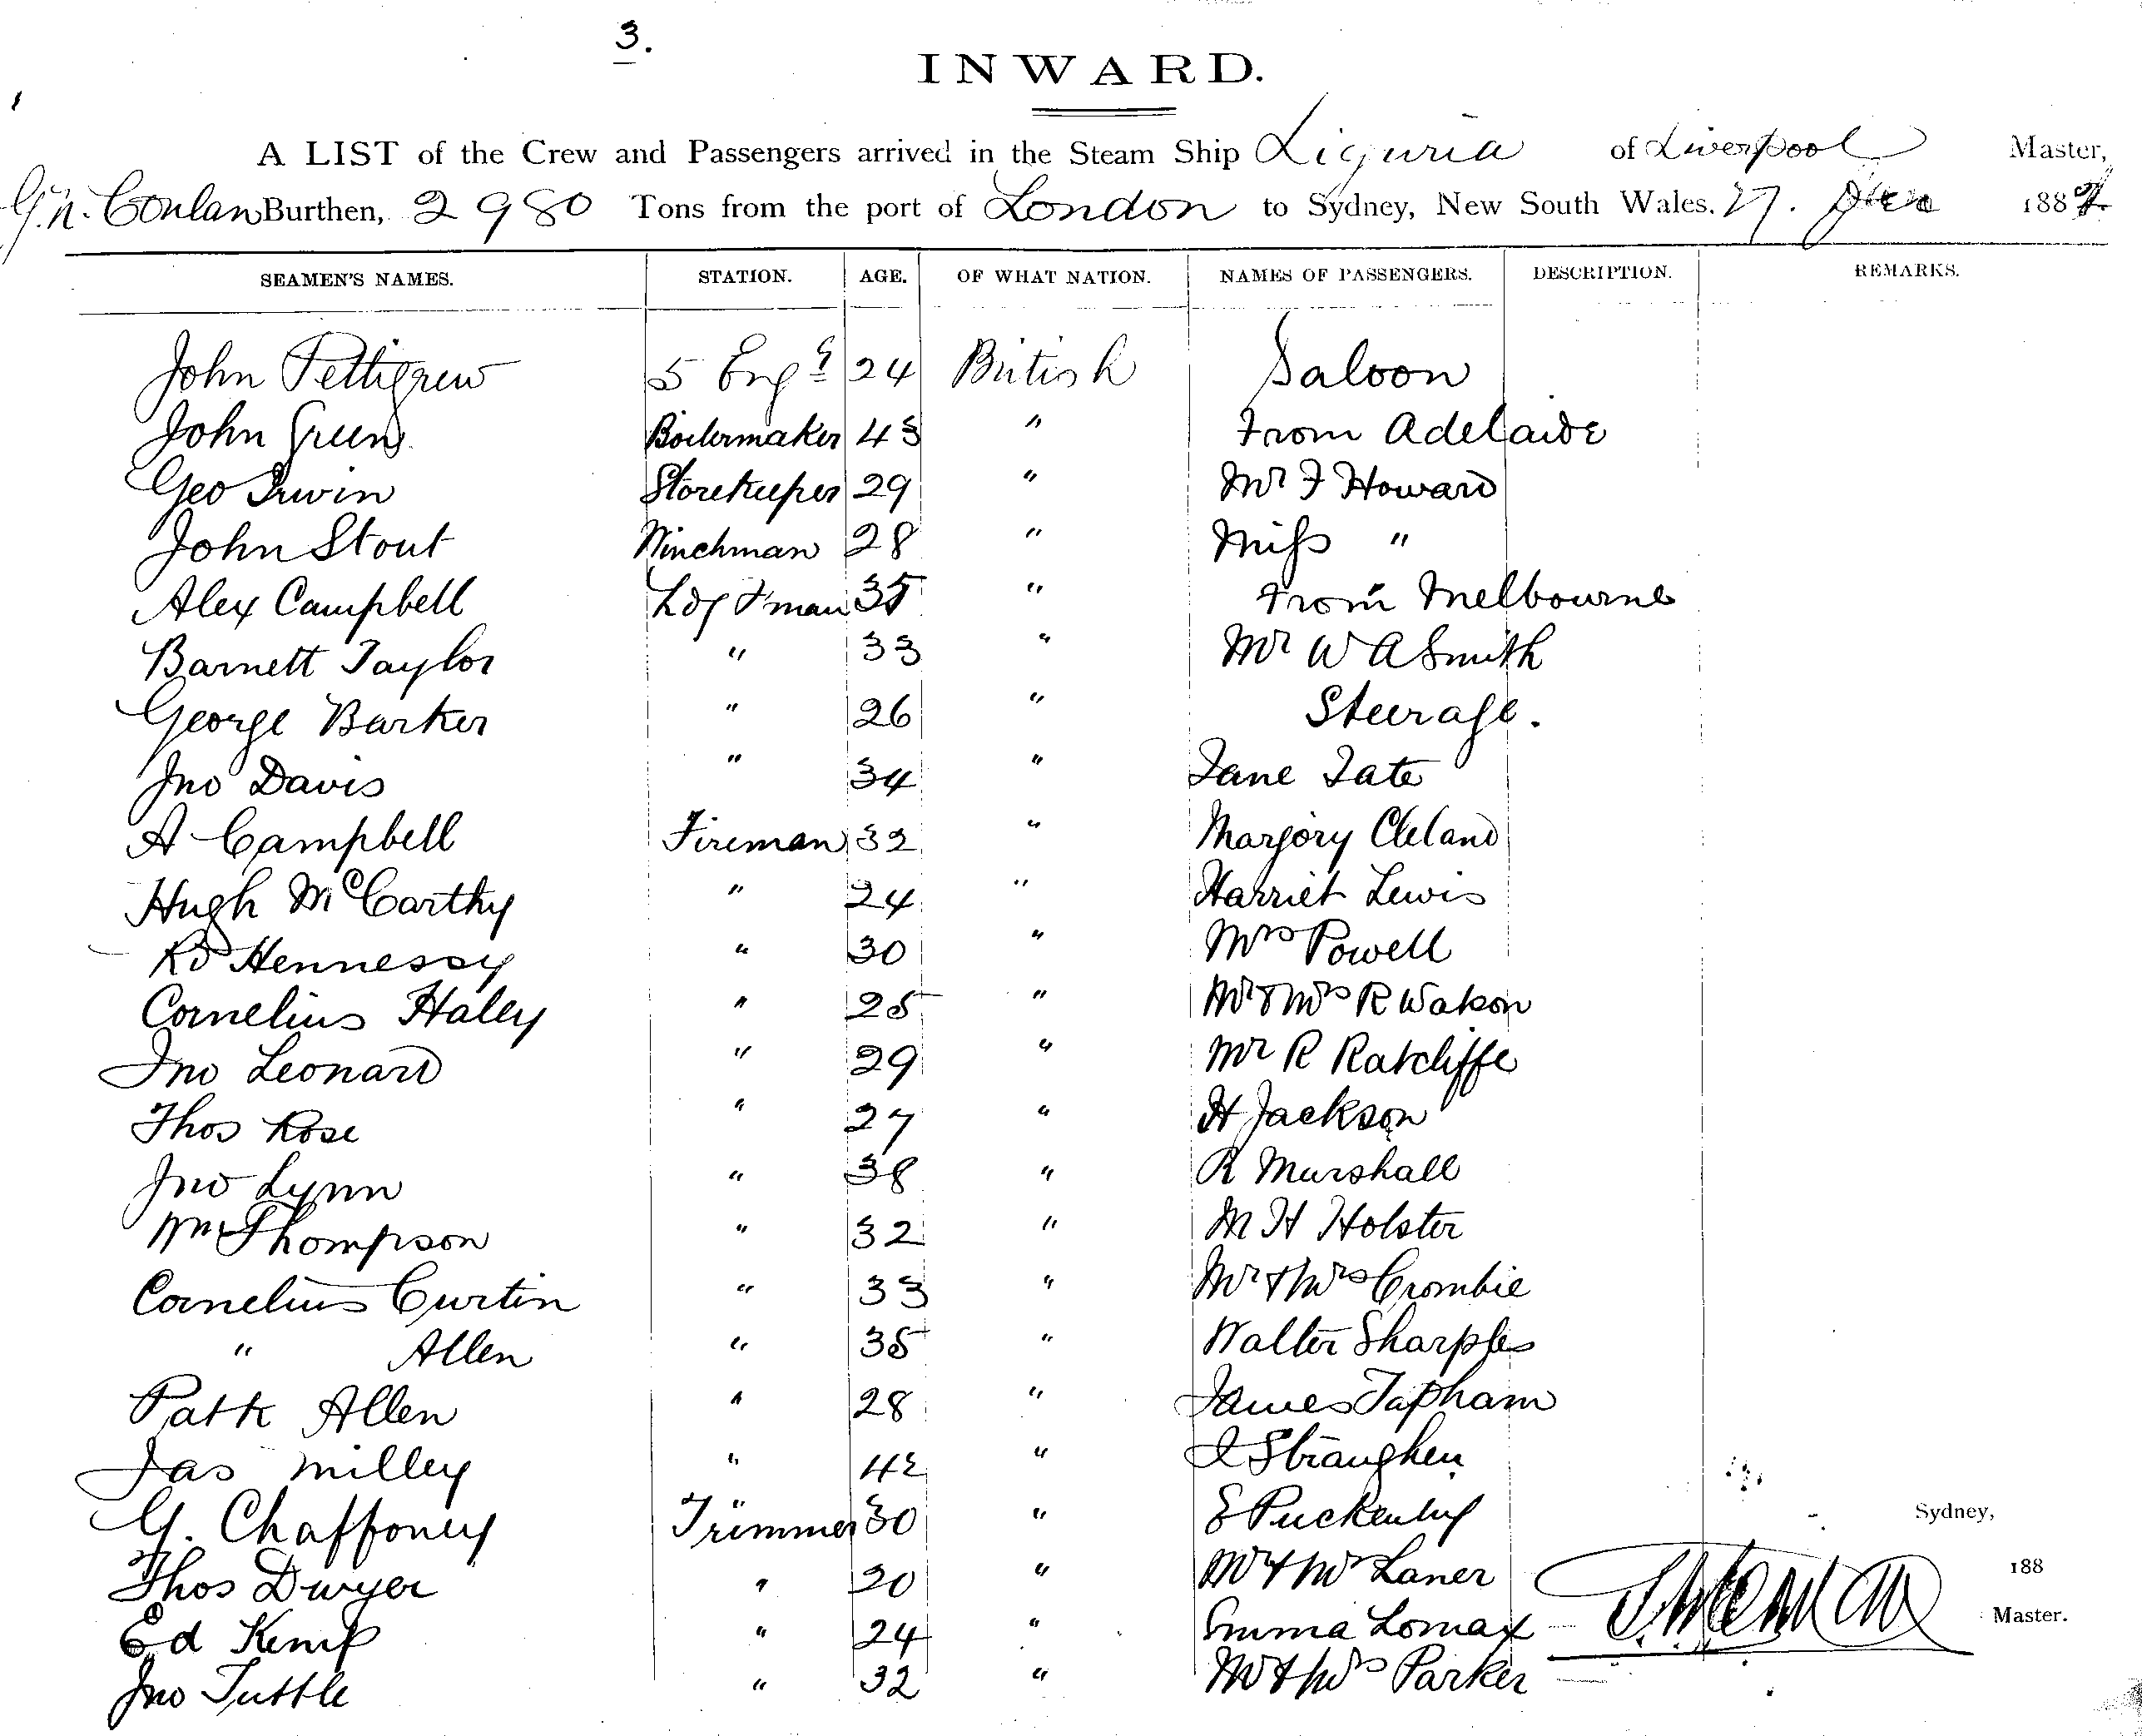 3.
INWARD.
A LIST of the Crew and Passengers arrived in the Steam Ship Liguria of Liverpool Master,
G.N. Conlan Burthen, 2980 Tons from the port of London to Sydney, New South Wales. 27. 188
SEAMEN'S NAMES. STATION. AGE. OF WHAT NATION. NAMES OF PASSENGERS. DESCRIPTION. REMARKS.
John Pettigrew 5 Engr 24 British Saloon
John Green Boilermaker 43 " From Adelaide
Geo Irwin Storekeeper 29 " Mr F Howard
John Stout Winchman 28 " Miss "
Alex Campbell Ldg F'man 35 " From Melbourne
Barnett Taylor " 33 " Mr W A Smith
George Barker " 26 " Steerage.
Jno Davis " 34 " Jane Tate
A Campbell Fireman 32 " Marjory Cleland
Hugh McCarthy " 24 " Harriet Lewis
Rd Hennessy " 30 " Mrs Powell
Cornelius Haley " 25 " Mr & Mrs R Watson
Jno Leonard " 29 " Mr R Ratcliffe
Thos Rose " 27 " H Jackson
Jno Lynn " 38 " R Murshall
Wm Thompson " 32 " M H Holster
Cornelius Curtin " 33 " Mr & Mrs Crombie
" Allen " 35 " Walter Sharples
Patk Allen " 28 " James Tapham
Jas Milley " 42 " I Straughen
G. Chaffoney Trimmer 30 " E
Thos Dwyer " 20 " Mr & Mrs Laner
Ed Kemp " 24 " Emma Lomax
Jno Tuttle " 32 " Mr & Mrs Parker
Sydney,
188
Master.